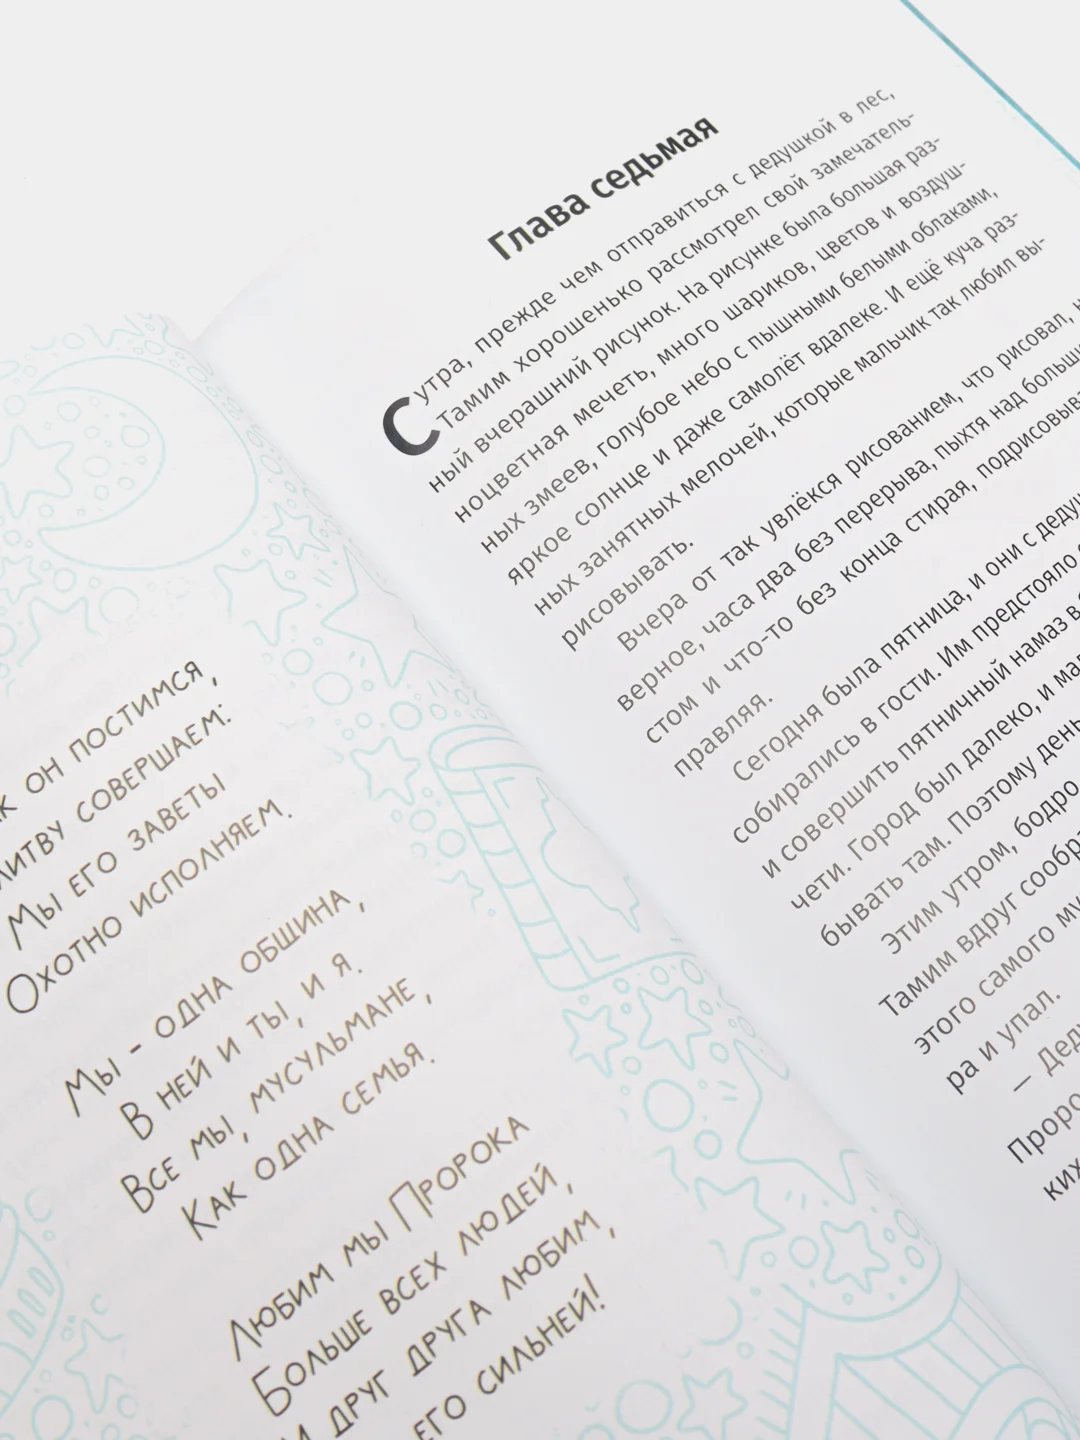 он постимся,
совершаем:
Мы его заветы
Охотно исполняем.
Мы - одна община,
В ней и ты, и я.
Все мы, мусульмане,
Как одна семья.
Любим мы Пророка
Больше всех людей,
И друг друга любим,
его сильней!
Глава седьмая
С утра, прежде чем отправиться с дедушкой в лес,
Тамим хорошенько рассмотрел свой замечатель-
ный вчерашний рисунок. На рисунке была большая раз-
ноцветная мечеть, много шариков, цветов и воздуш-
ных змеев, голубое небо с пышными белыми облаками,
яркое солнце и даже самолёт вдалеке. И ещё куча раз-
ных занятных мелочей, которые мальчик так любил вы-
рисовывать.
Вчера от так увлёкся рисованием, что рисовал,
верное, часа два без перерыва, пыхтя над
стом и что-то без конца стирая,
правляя.
Сегодня была пятница, и они с
собирались в гости. Им предстояло
и совершить пятничный намаз в
чети. Город был далеко, и
бывать там. Поэтому день
Этим утром, бодро
Тамим вдруг
этого самого
ра и упал.
—
ких